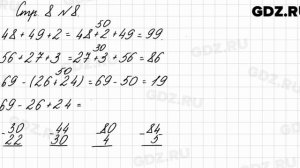 GDZ.RU
Стр. 8 №8.
50
48+49+2 = 48+2+49 = 99.
30
56+27+3 = 27+3+56 = 86
50
69-(26+24) = 69-50 = 19
69-26+24 =
-30 -44 -80 -84
22 30 4 5
GDZ.RU